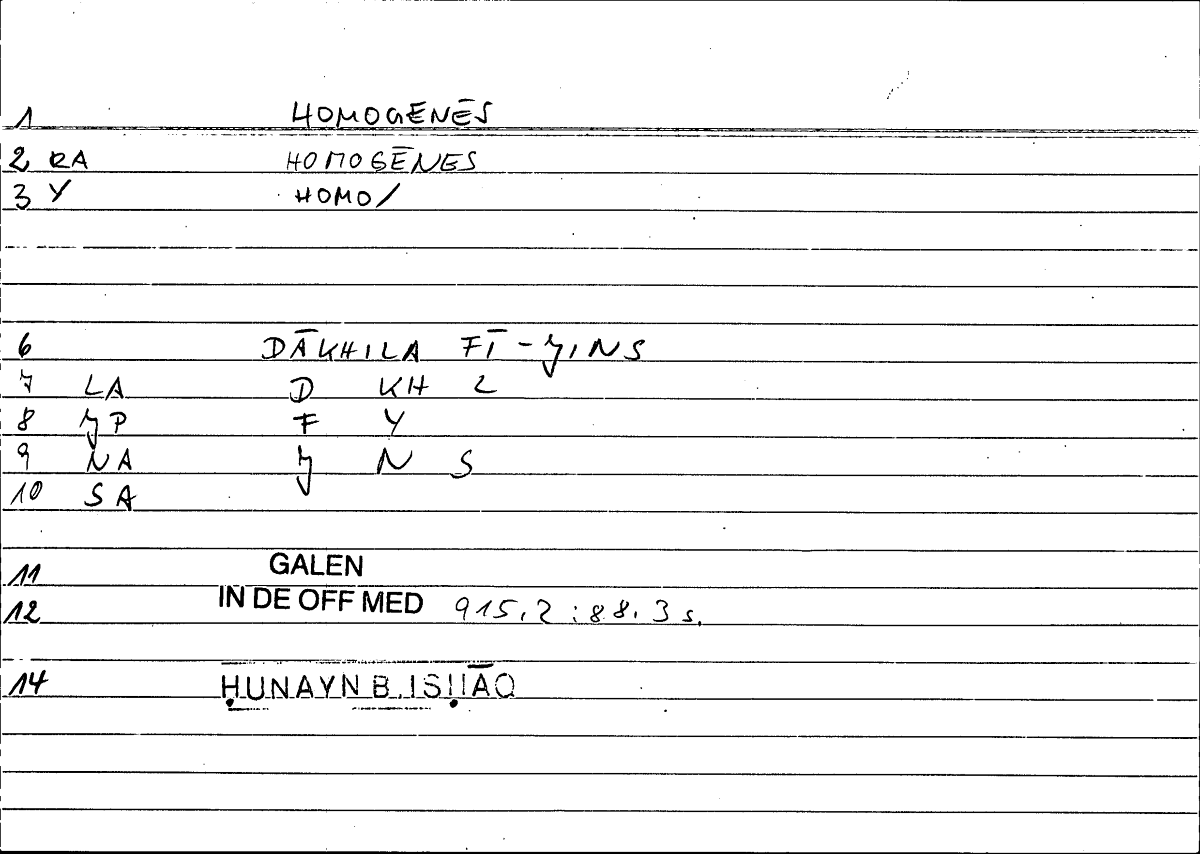 1 HOMOGENĒS
2 RA HOMOGĒNES
3 Y HOMO/
6 DĀKHILA FĪ-JINS
7 LA D KH L
8 JP F Y
9 NA J N S
10 SA
11 GALEN
12 IN DE OFF MED 915.2:88.3 s.
14 ḤUNAYN B. ISḤĀQ